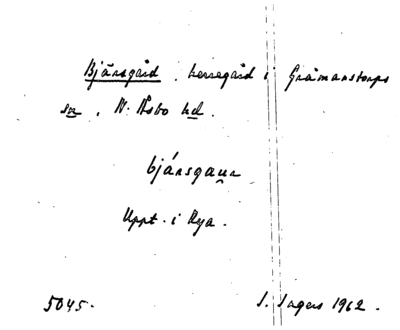 Bjärsgård, herregård i Gråmanstorps
sn, N. Åsbo hd.
bjársgau̯r
Uppt. i Rya.
5045. I. Ingers 1962.